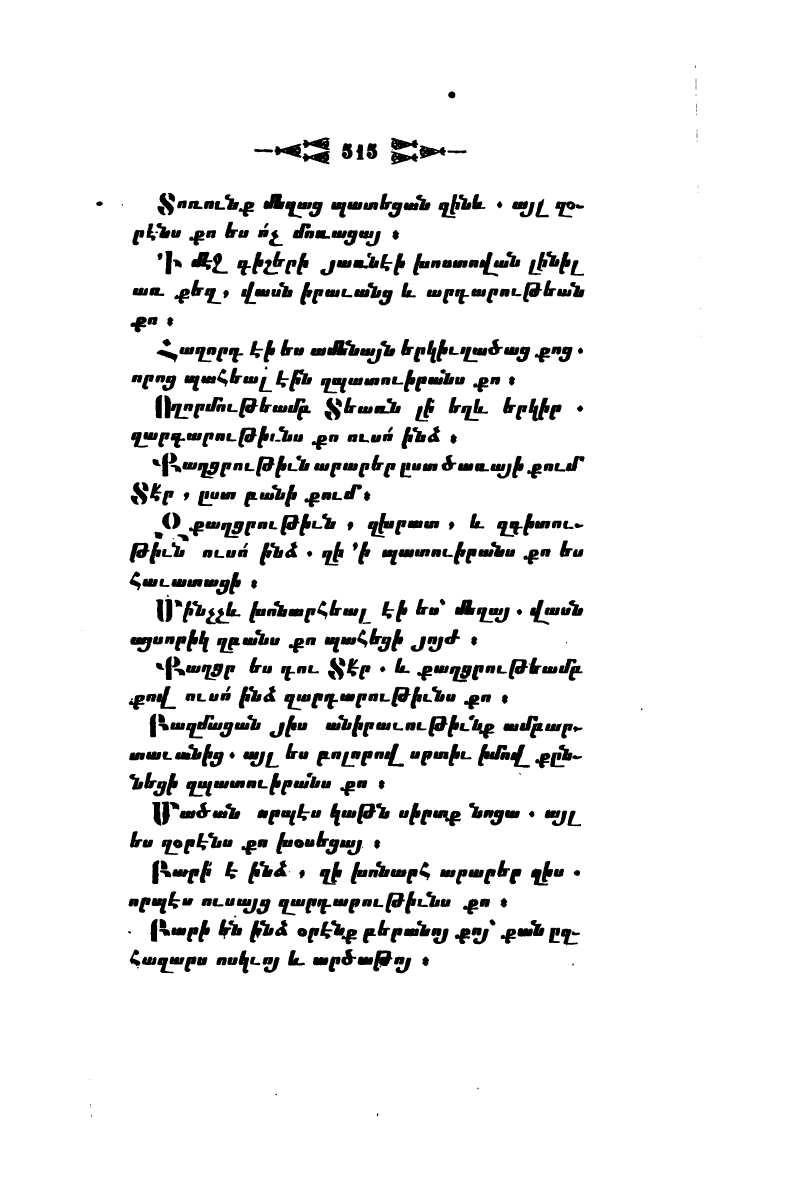 515
Տոռունք մեղաց պատեցան զինև . այլ զօ-
րէնս քո ես ո՛չ մոռացայ ։
՚Ի մէջ գիշերի յառնէի խոստովան լինիլ
առ քեզ , վասն իրաւանց և արդարութեան
քո ։
Հաղորդ էի ես ամենայն երկիւղածաց քոց .
որոց պահեալ էին զպատուիրանս քո ։
Ողորմութեամբ Տեառն լի եղև երկիր .
զարդարութիւնս քո ուսո՛ ինձ ։
Քաղցրութիւն արարեր ըստ ծառայի քում՝
Տէր , ըստ բանի քում ։
Զքաղցրութիւն , զխրատ , և զգիտու-
թիւն ուսո՛ ինձ . զի ՚ի պատուիրանս քո ես
հաւատացի ։
Մինչչև խոնարհեալ էի ես՝ մեղայ . վասն
այսորիկ զբանս քո պահեցի յոյժ ։
Քաղցր ես դու Տէր . և քաղցրութեամբ
քով ուսո՛ ինձ զարդարութիւնս քո ։
Բազմացան յիս անիրաւութիւնք ամբար-
տաւանից . այլ ես բոլորով սրտիւ իմով քըն-
նեցի զպատուիրանս քո ։
Մածան որպէս կաթն սիրտք նոցա . այլ
ես զօրէնս քո խօսեցայ ։
Բարի՛ է ինձ , զի խոնարհ արարեր զիս .
որպէս ուսայց զարդարութիւնս քո ։
Բարի են ինձ օրէնք բերանոյ քոյ՝ քան ըզ-
հազարս ոսկւոյ և արծաթոյ ։